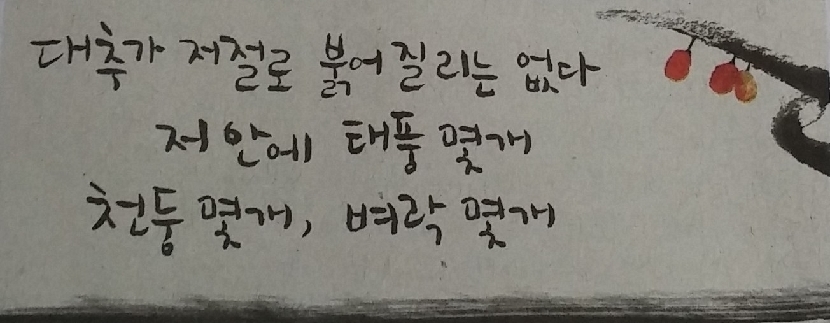 대추가 저절로 붉어 질리는 없다
저 안에 태풍 몇개
천둥 몇개, 벼락 몇개